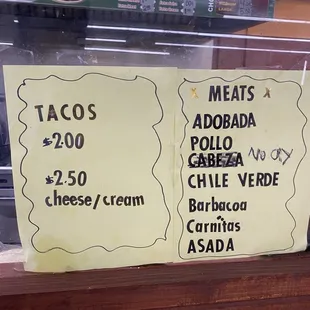 CHILE VERDE
TACOS
$2.00
$2.50
cheese/cream
MEATS
ADOBADA
POLLO
CABEZA
CHILE VERDE
Barbacoa
Carnitas
ASADA